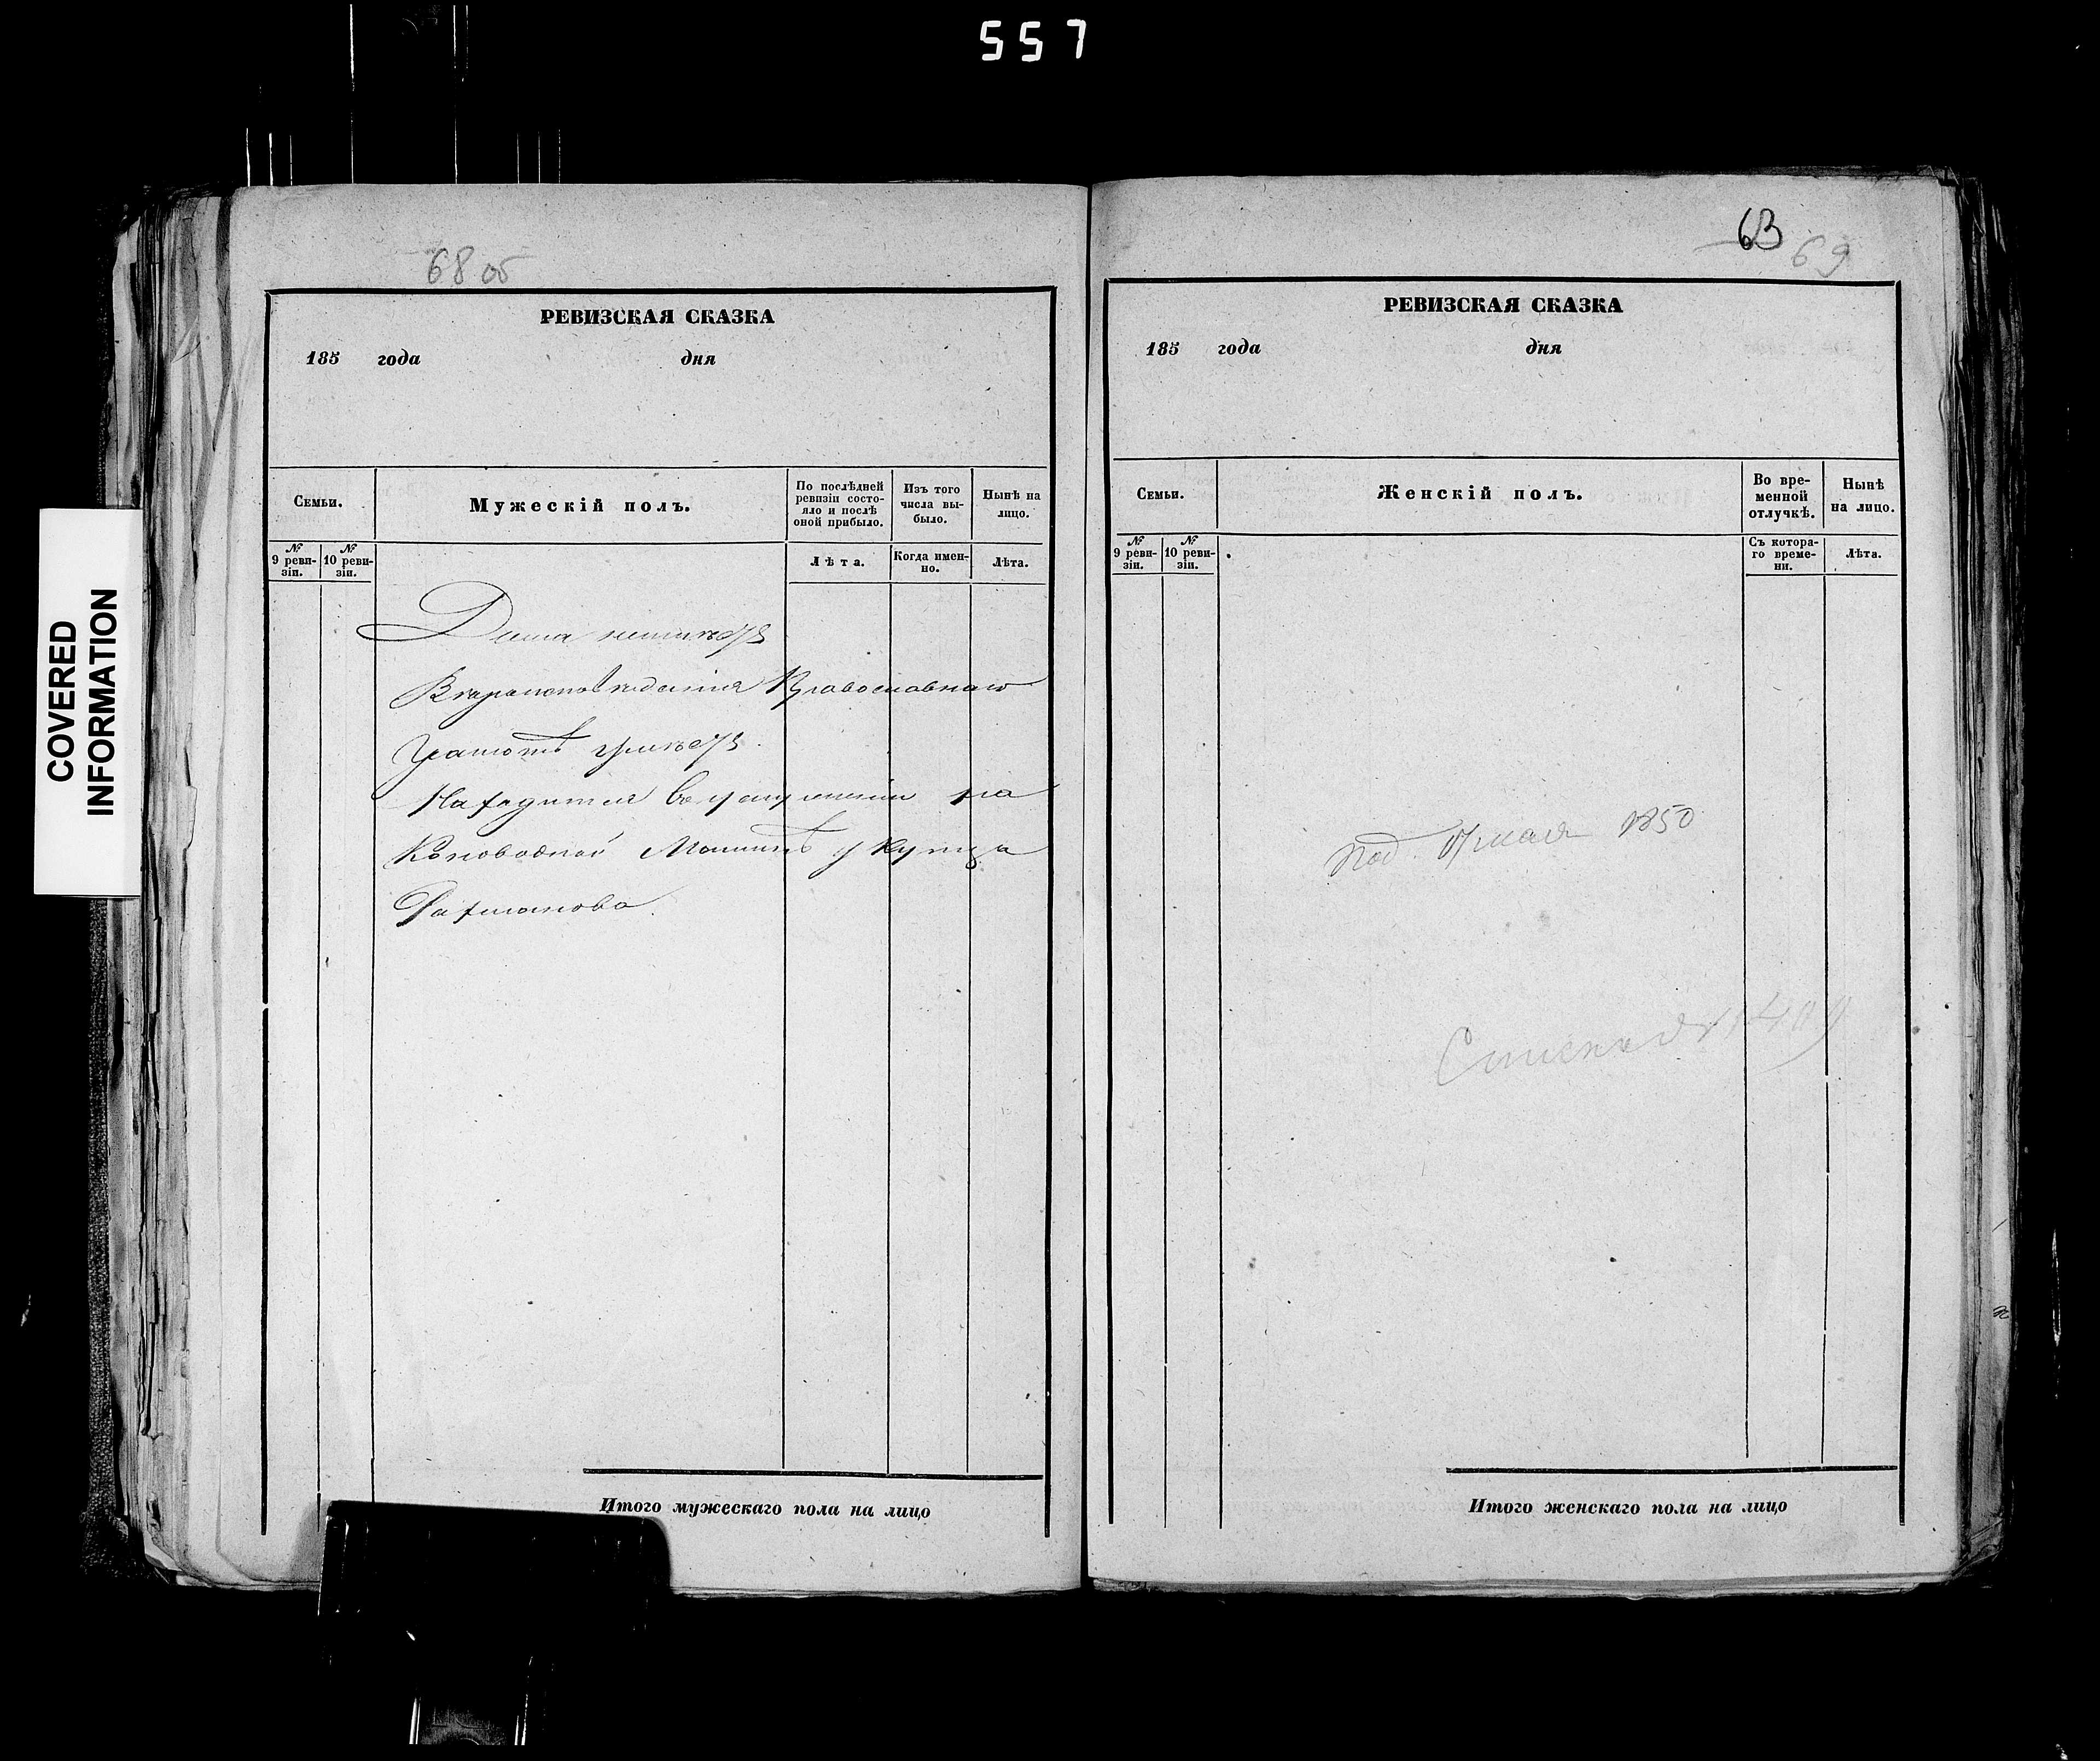 557
COVERED
INFORMATION
68 об
РЕВИЗСКАЯ СКАЗКА
185 года дня
Семьи.
Мужескій полъ.
По послѣдней
ревизіи состо-
яло и послѣ
оной прибыло.
Изъ того
числа вы-
было.
Нынѣ на
лицо.
№
9 реви-
зіи.
№
10 реви-
зіи.
Лѣта.
Когда имен-
но.
Лѣта.
Вѣроисповѣданія Православнаго
Находится въ услуженіи на
Коноводной Машинѣ у Купца
Рахманова.
Итого мужескаго пола на лицо
63
69
РЕВИЗСКАЯ СКАЗКА
185 года дня
Семьи.
Женскій полъ.
Во вре-
менной
отлучкѣ.
Нынѣ
на лицо.
№
9 реви-
зіи.
№
10 реви-
зіи.
Съ котора-
го време-
ни.
Лѣта.
Под. мая 1850
Итого женскаго пола на лицо